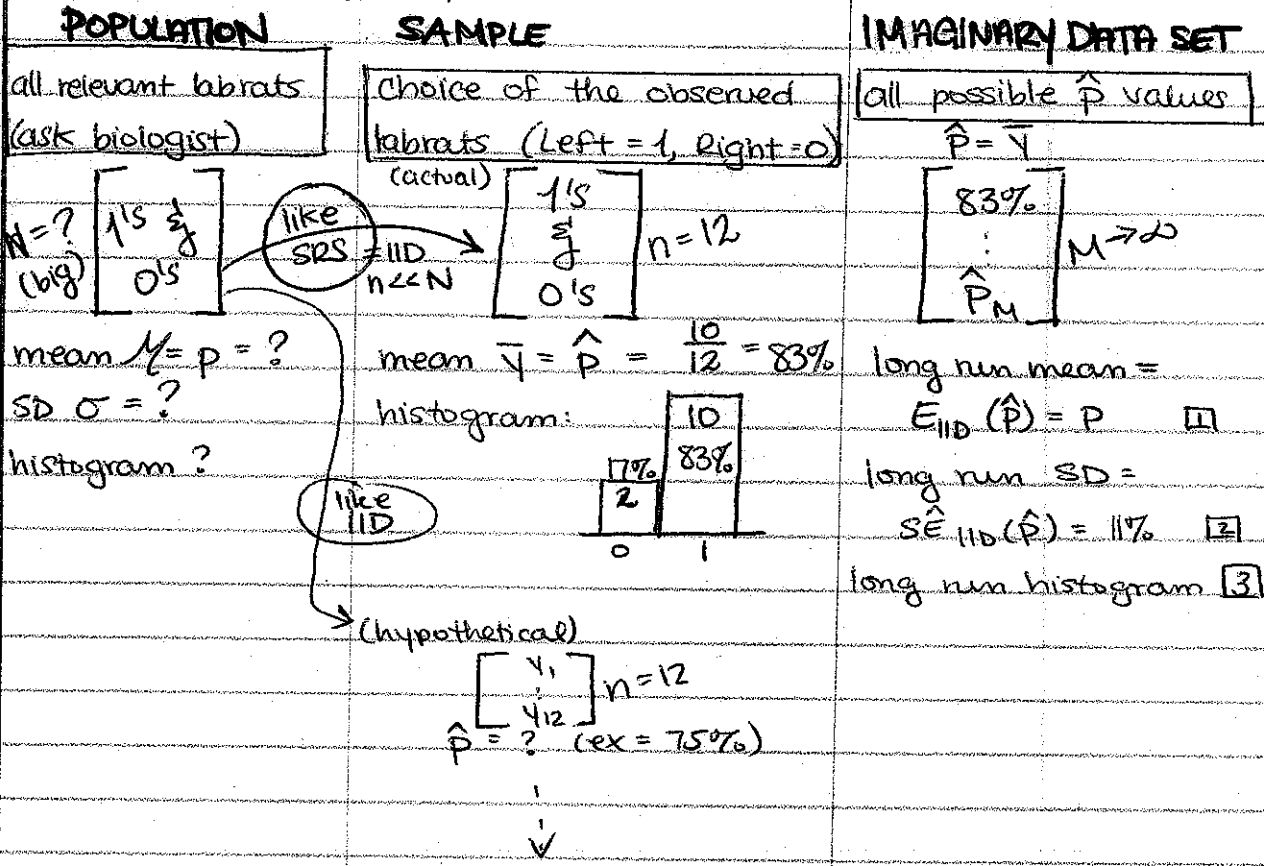 POPULATION
all relevant labrats
(ask biologist)
N=?
(big)
1's &
0's
mean μ = p = ?
SD σ = ?
histogram ?
like
SRS = IID
n<<N
like
IID
SAMPLE
Choice of the observed
labrats (Left = 1, Right = 0)
(actual)
1's
&
0's
n = 12
mean ȳ = p̂ = 10/12 = 83%
histogram:
10
17% 83%
2
0 1
(hypothetical)
y₁
⋮
y₁₂
n = 12
p̂ = ? (ex = 75%)
IMAGINARY DATA SET
all possible p̂ values
p̂ = ȳ
83%
⋮
p̂_M
M → ∞
long run mean =
E_IID (p̂) = p [1]
long run SD =
SÊ_IID (p̂) = 11% [2]
long run histogram [3]